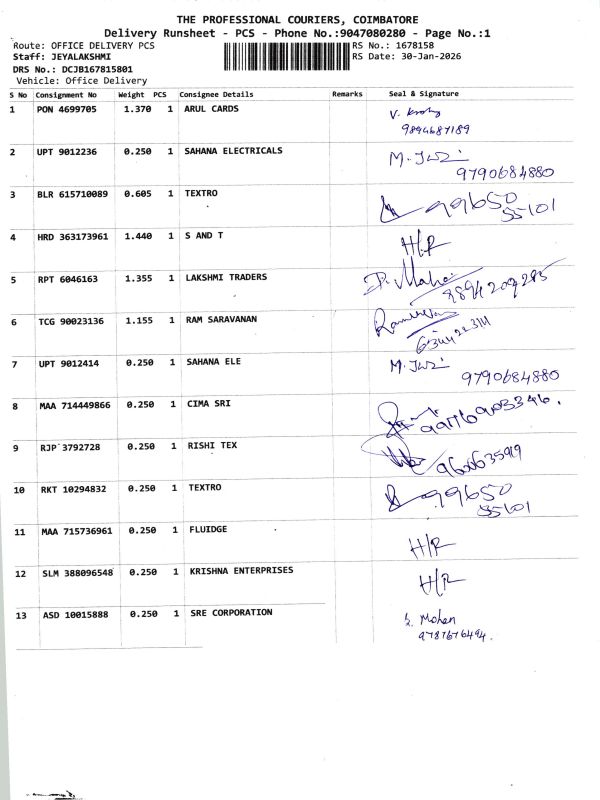 THE PROFESSIONAL COURIERS, COIMBATORE
Delivery Runsheet - PCS - Phone No.:9047080280 - Page No.:1
Route: OFFICE DELIVERY PCS RS No.: 1678158
Staff: JEYALAKSHMI RS Date: 30-Jan-2026
DRS No.: DCJB167815801
Vehicle: Office Delivery
S No Consignment No Weight PCS Consignee Details Remarks Seal & Signature
1 PON 4699705 1.370 1 ARUL CARDS
9894687189
2 UPT 9012236 0.250 1 SAHANA ELECTRICALS
9790684880
3 BLR 615710089 0.605 1 TEXTRO 99650
55101
4 HRD 363173961 1.440 1 S AND T H/R
5 RPT 6046163 1.355 1 LAKSHMI TRADERS
6 TCG 90023136 1.155 1 RAM SARAVANAN
7 UPT 9012414 0.250 1 SAHANA ELE
9790684880
8 MAA 714449866 0.250 1 CIMA SRI
9 RJP 3792728 0.250 1 RISHI TEX
10 RKT 10294832 0.250 1 TEXTRO 99650
55101
11 MAA 715736961 0.250 1 FLUIDGE H/R
12 SLM 388096548 0.250 1 KRISHNA ENTERPRISES H/R
13 ASD 10015888 0.250 1 SRE CORPORATION Mohan
9787676494.